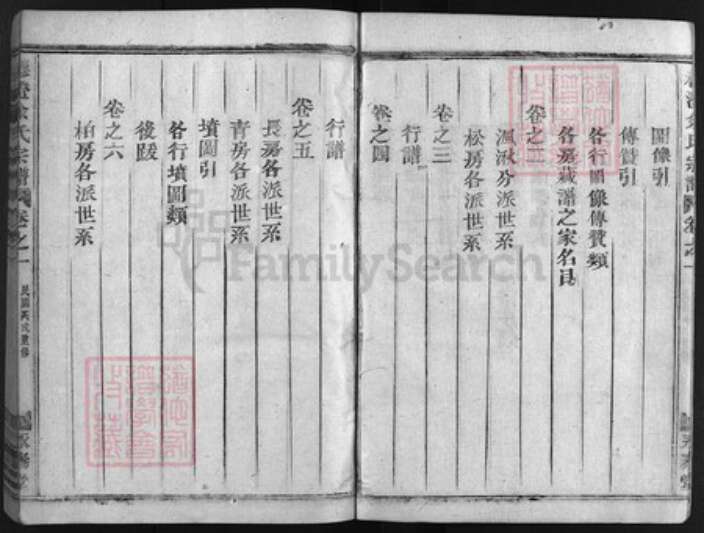 圖像引
傳贊引
各行圖像傳贊類
各房藏譜之家名目
卷之二
派
分派世系
松房各派世系
卷之三
行譜
卷之四
行譜
卷之五
長房各派世系
青房各派世系
墳圖引
各行墳圖類
後跋
卷之六
柏房各派世系
氏宗譜
卷之一
民國
重修
FamilySearch